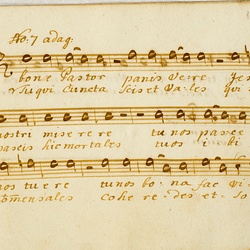 No: 7 adag:
bone Pastor panis vere Je
Tu qui cuncta scis et vales qui
nostri miserere tu nos pasce
pascis hic mortales tuos i bi
nos tuere tu nos bo na fac vi
Comensales cohe re des et so